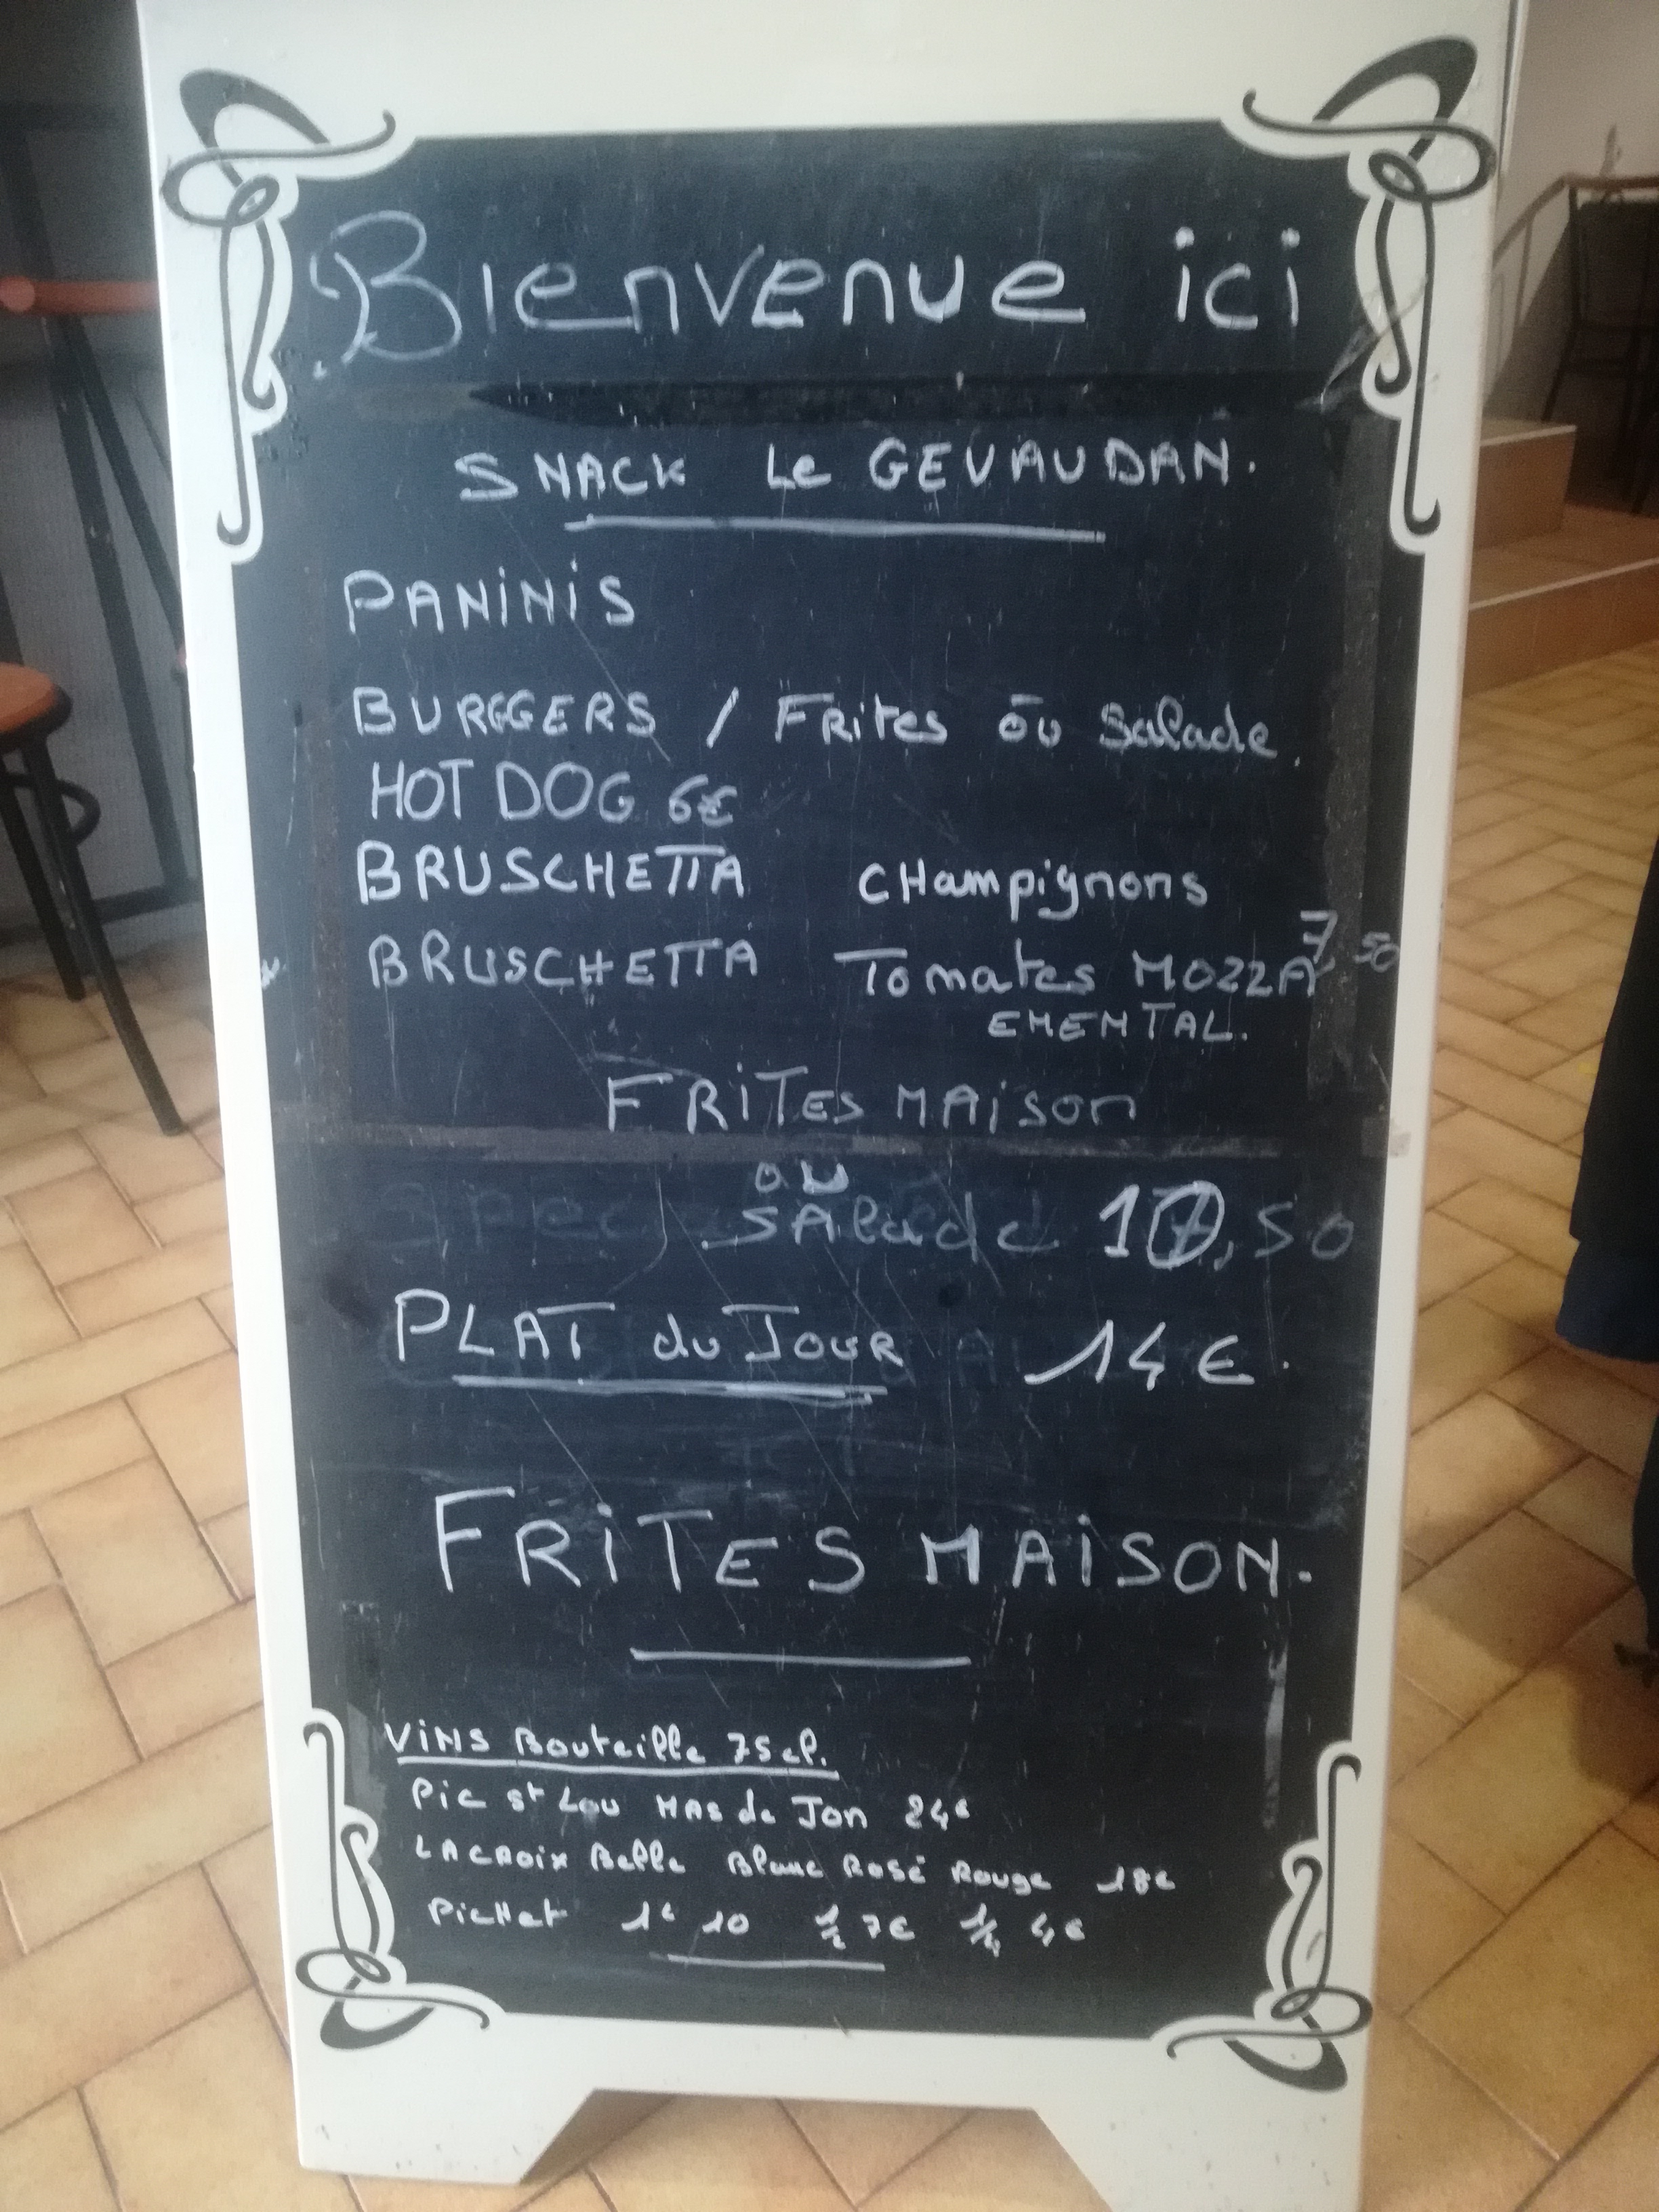 Bienvenue ici
SNACK Le GEVAUDAN.
PANINIS
BURGGERS / Frites ou Salade
HOT DOG 6€
BRUSCHETTA CHampignons
BRUSCHETTA Tomates MOZZA 7,50
EMENTAL.
FRITES MAISON
ou
SALade 10,50
PLAT du JOUR 14€.
FRITES MAISON.
VINS Bouteille 75cl.
Pic St Lou MAS de Jon 24€
LACROIX Belle Blanc Rosé Rouge 18€
PicHet 1L 10 1/2 7€ 1/4 4€